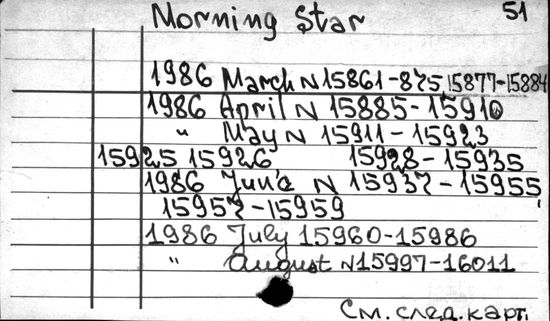 Morning Star 51
1986 March N 15861-875, 15877-15884
1986 April N 15885-15910
" May N 15911-15923
15925 15926 15928-15935
1986 Jun'e N 15937-15955
15957-15959
1986 July 15960-15986
" August N 15997-16011
См. след. карт.